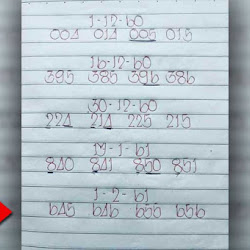 1-12-60
004 014 005 015
16-12-60
395 385 396 386
30-12-60
224 214 225 215
17-1-61
840 841 850 851
1-2-61
645 646 655 656